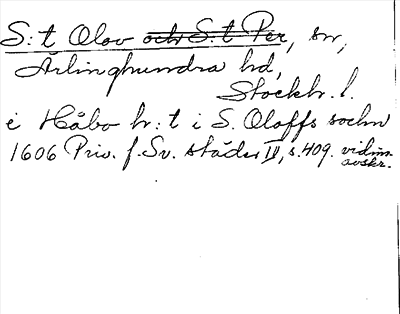 S:t Olov och S:t Per, sn,
Ärlinghundra hd,
Stockh. l.
i Håbo hr:t i S. Oloffs sochn
1606 Priv. f. Sv. städer IV, s. 409. vidim. avskr.